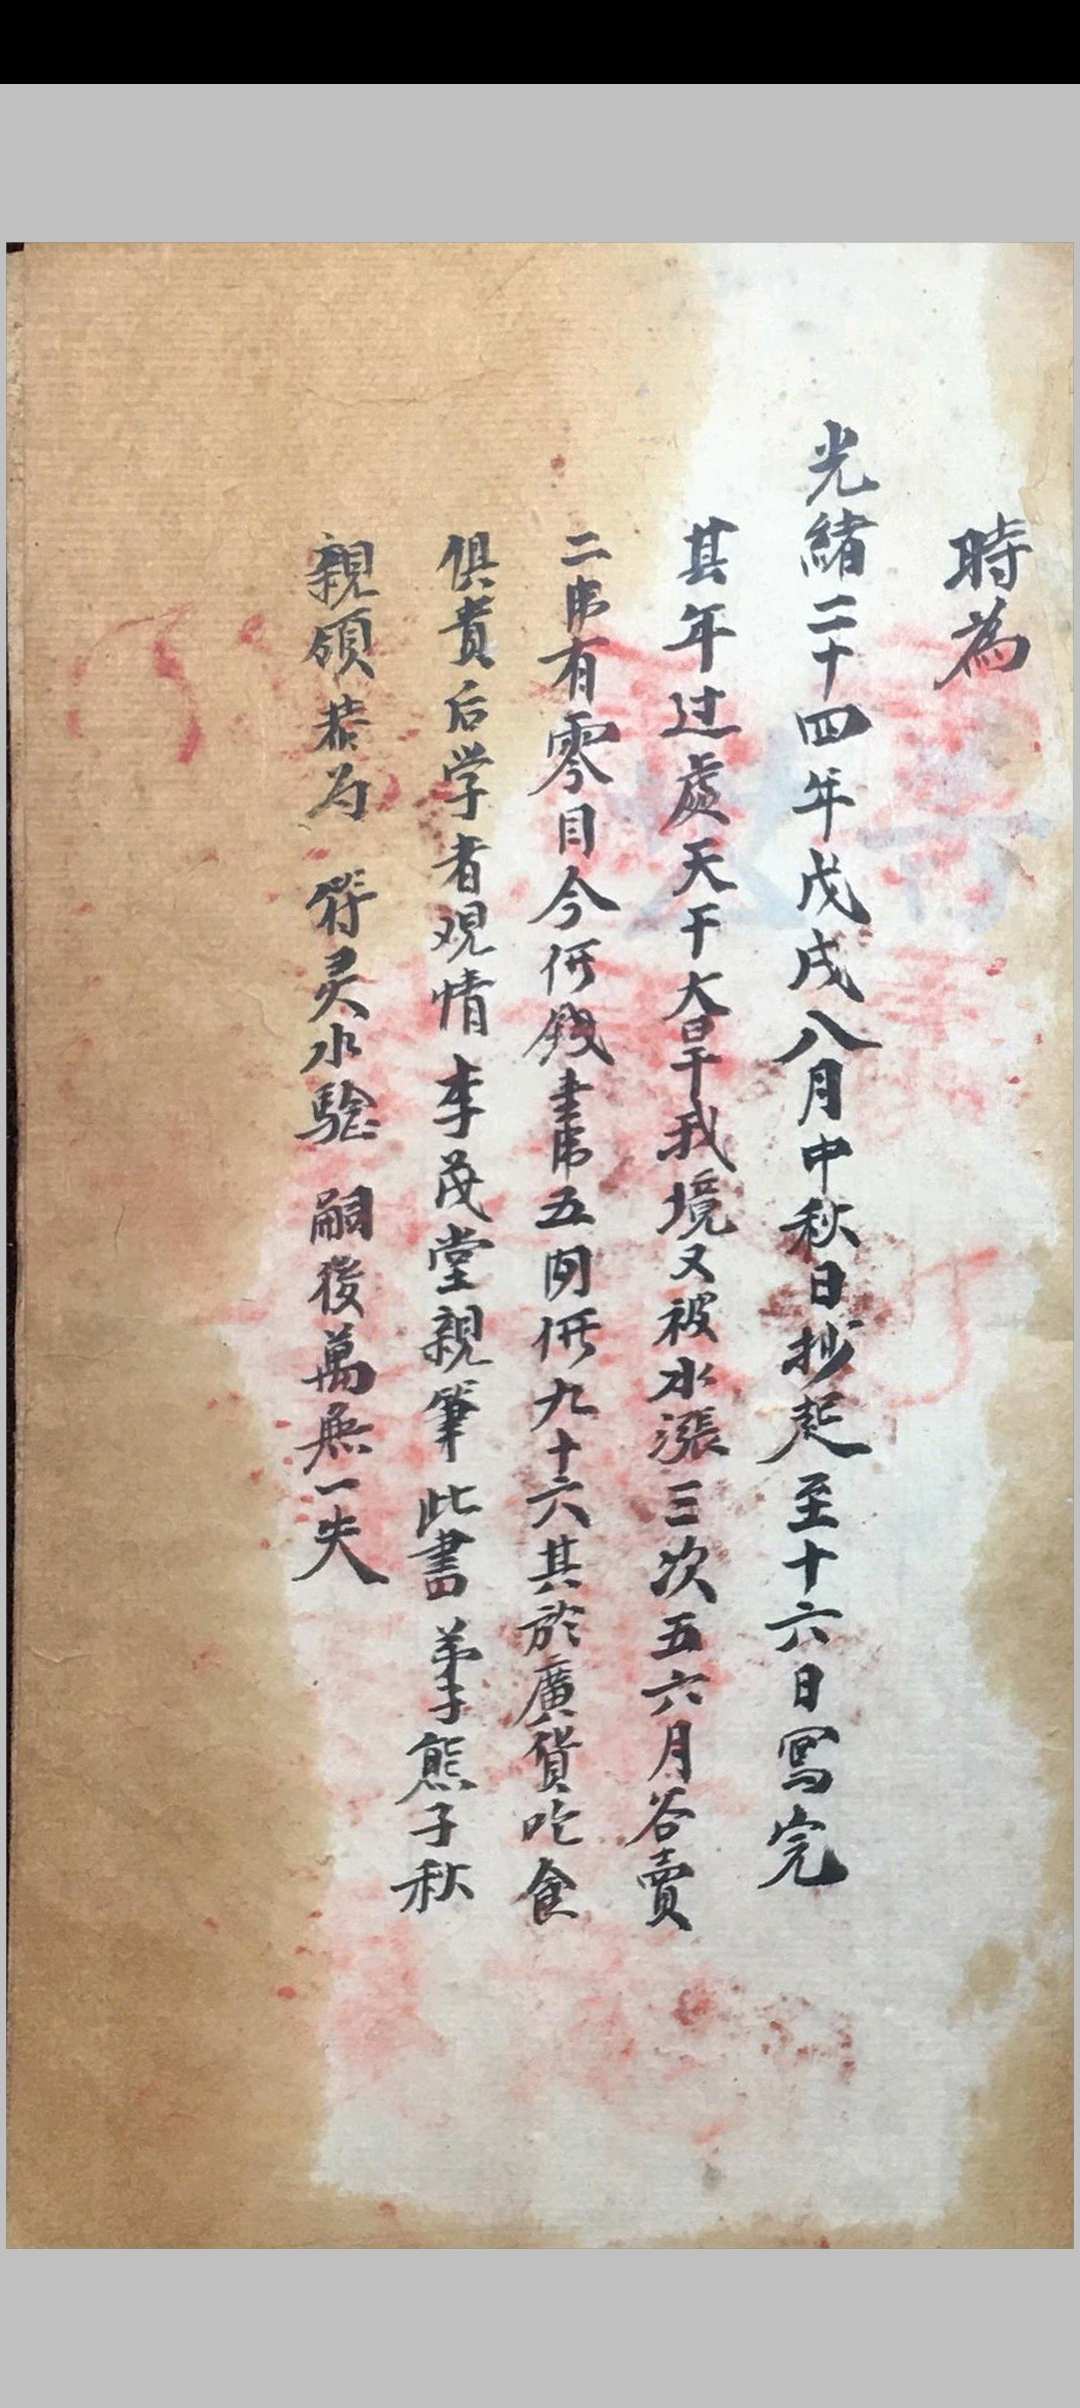 時為
光緒二十四年戊戌八月中秋日抄起至十六日寫完
其年过處天干大旱我境又被水漲三次五六月谷賣
二串有零目今何錢串五間何九十六其於廣貨吃食
俱貴后学者观情李茂堂親筆此書弟子熊子秋
親領恭为 符灵水驗 嗣後萬無一失